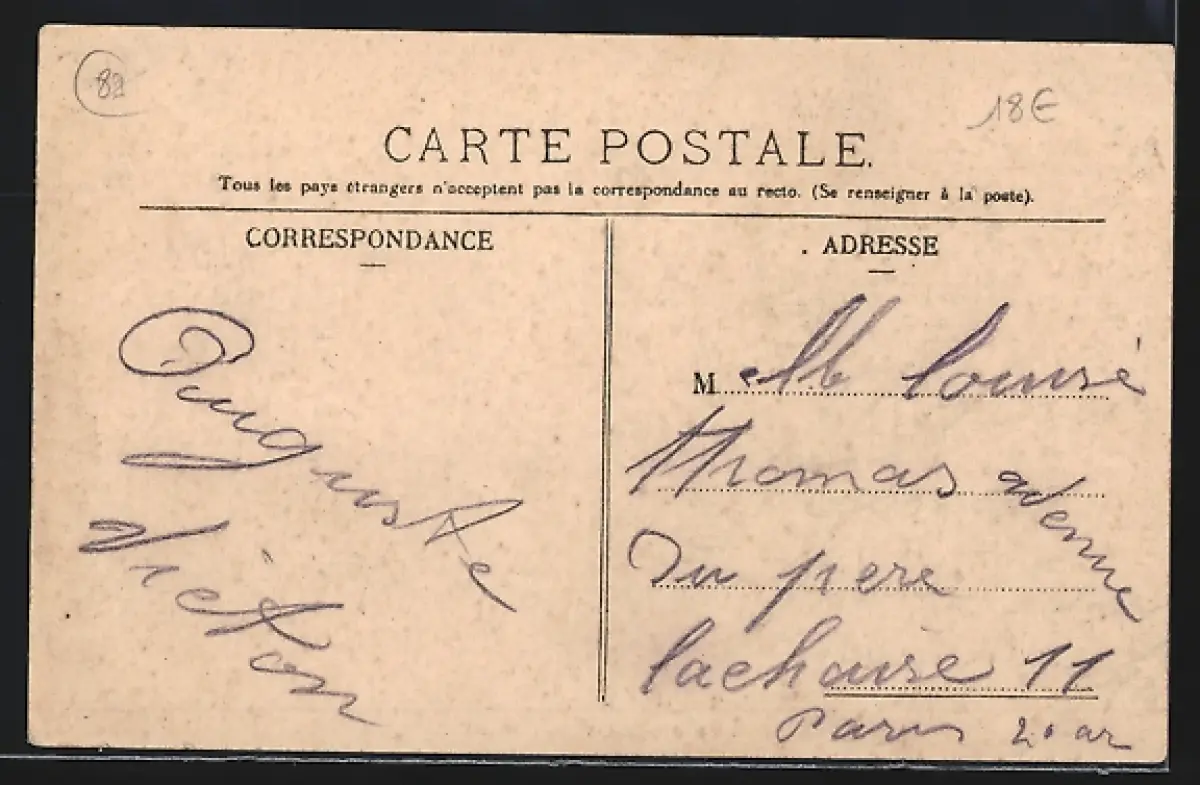 82
18€
CARTE POSTALE.
Tous les pays étrangers n'acceptent pas la correspondance au recto. (Se renseigner à la poste).
CORRESPONDANCE
Auguste
victor
ADRESSE
M elle louise
thomas avenue
Du pere
lachaise 11
Paris 20 ar